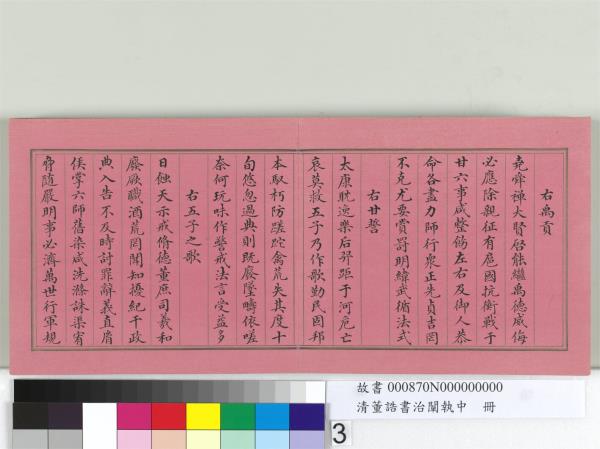 右禹貢
堯舜禪大賢啓能繼禹德威侮
必應除親征有扈國抗衡戰于
甘六事咸整飭左右及御人恭
命各盡力師行衆正先貞吉罔
不克尤要賞罰明緯武循法式
右甘誓
太康耽逸樂后羿距于河危亡
哀莫救五子乃作歌勤民固邦
本馭朽防蹉跎禽荒失其度十
旬悠忽過典則既廢墜疇依嗟
奈何玩味作警戒法言受益多
右五子之歌
日蝕天示戒脩德董庶司羲和
廢厥職酒荒罔聞知擾紀干政
典入告不及時討罪辭義直胤
侯掌六師舊染咸洗滌誅渠宥
脅隨嚴明事必濟萬世行軍規
故書 000870N000000000
清董誥書治闡執中 冊
3